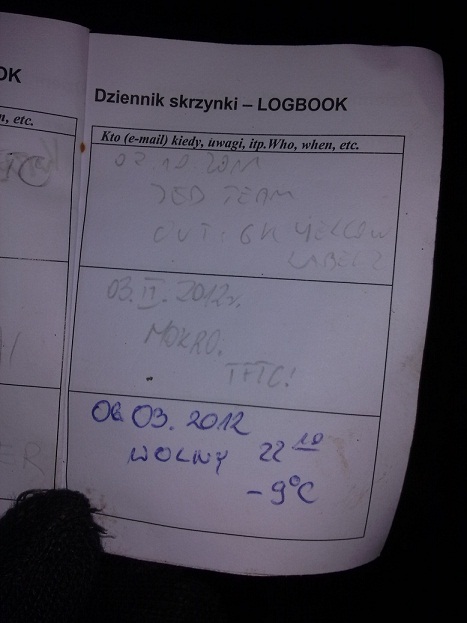 OK
Dziennik skrzynki – LOGBOOK
, etc.
Kto (e-mail) kiedy, uwagi, itp.Who, when, etc.
02 10 2011
JED TEAM
OUT: GK YELLOW
03.II.2012r.
MOKRO.
TFTC!
06 03. 2012
WOLNY 22 10
-9°C
ER